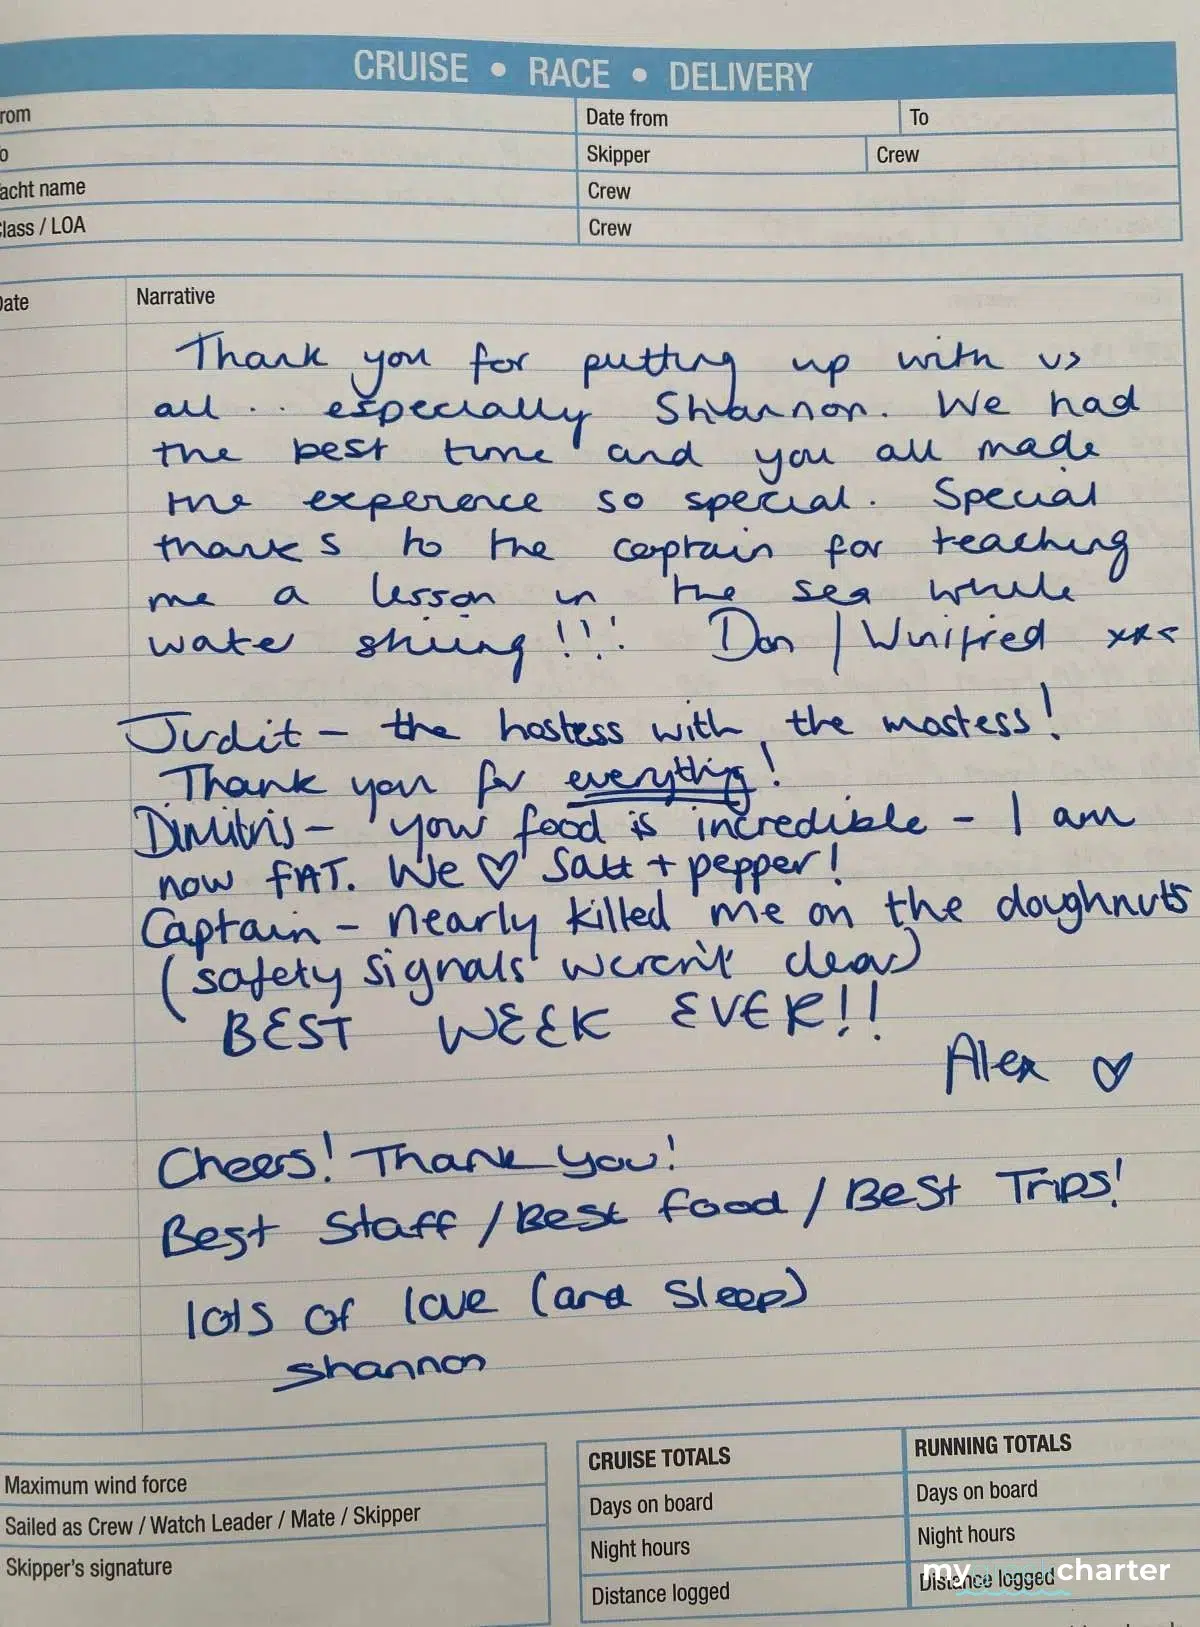 CRUISE • RACE • DELIVERY
rom
Date from
To
o
Skipper
Crew
acht name
Crew
lass / LOA
Crew
Date
Narrative
Thank you for putting up with us
all .. especially Shannon. We had
the best time and you all made
the experence so special. Special
thanks to the captain for teaching
me a lesson in the sea while
water skiing!!! Dan / Winifred xxx
Judit – the hostess with the mostess!
Thank you for everything!
Dimitris – your food is incredible – I am
now FAT. We ♡ Salt + pepper!
Captain – nearly killed me on the doughnuts
(safety signals weren't clear)
BEST WEEK EVER!!
Alex ♡
Cheers! Thank you!
Best Staff / Best food / Best Trips!
lots of love (and sleep)
Shannon
Maximum wind force
Sailed as Crew / Watch Leader / Mate / Skipper
Skipper's signature
CRUISE TOTALS
Days on board
Night hours
Distance logged
RUNNING TOTALS
Days on board
Night hours
Distance logged
my charter